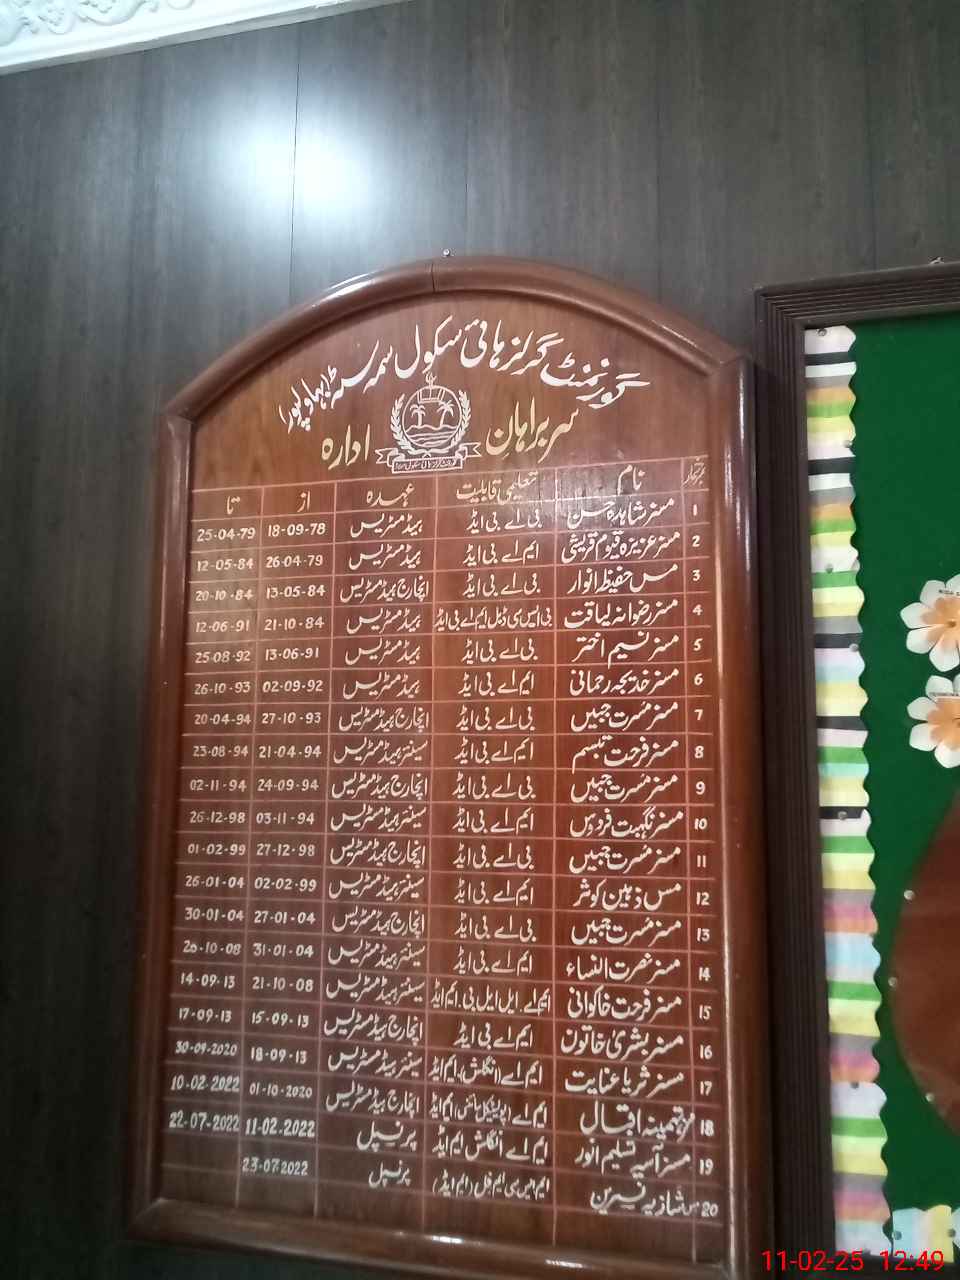 گورنمنٹ گرلز ہائی سکول سمہ سٹہ (بہاولپور)
سربراہانِ ادارہ
نمبر شمار نام تعلیمی قابلیت عہدہ از تا
1 مسز شاہدہ حسن بی اے بی ایڈ ہیڈمسٹریس 18-09-78 25-04-79
2 مسز عزیزہ قیوم قریشی ایم اے بی ایڈ ہیڈمسٹریس 26-04-79 12-05-84
3 مس حفیظ انوار بی اے بی ایڈ انچارج ہیڈمسٹریس 13-05-84 20-10-84
4 مسز رضوانہ لیاقت بی ایس سی ڈبل ایم اے بی ایڈ ہیڈمسٹریس 21-10-84 12-06-91
5 مسز نسیم اختر بی اے بی ایڈ ہیڈمسٹریس 13-06-91 25-08-92
6 مسز خدیجہ رحمانی ایم اے بی ایڈ ہیڈمسٹریس 02-09-92 26-10-93
7 مسز مُسرت جبیں بی اے بی ایڈ انچارج ہیڈمسٹریس 27-10-93 20-04-94
8 مسز فرحت تبسم ایم اے بی ایڈ سینئر ہیڈمسٹریس 21-04-94 23-08-94
9 مسز مُسرت جبیں بی اے بی ایڈ انچارج ہیڈمسٹریس 24-09-94 02-11-94
10 مسز نگہت فردوس ایم اے بی ایڈ سینئر ہیڈمسٹریس 03-11-94 26-12-98
11 مسز مُسرت جبیں بی اے بی ایڈ انچارج ہیڈمسٹریس 27-12-98 01-02-99
12 مس ذہین کوثر ایم اے بی ایڈ سینئر ہیڈمسٹریس 02-02-99 26-01-04
13 مسز مُسرت جبیں بی اے بی ایڈ انچارج ہیڈمسٹریس 27-01-04 30-01-04
14 مسز نصرت النساء ایم اے بی ایڈ سینئر ہیڈمسٹریس 31-01-04 20-10-08
15 مسز فرحت خاکوانی ایم اے. ایل ایل بی. ایم ایڈ سینئر ہیڈمسٹریس 21-10-08 14-09-13
16 مسز بشریٰ خاتون ایم اے بی ایڈ انچارج ہیڈمسٹریس 15-09-13 17-09-13
17 مسز ثریا عنایت ایم اے (انگلش)، ایم ایڈ سینئر ہیڈمسٹریس 18-09-13 30-09-2020
18 تہمینہ اقبال ایم اے (پولیٹیکل سائنس) ایم ایڈ انچارج ہیڈمسٹریس 01-10-2020 10-02-2022
19 مسز آسیہ تسلیم انور ایم اے انگلش ایم ایڈ پرنسپل 11-02-2022 22-07-2022
20 مس شازیہ نسرین ایم ایس سی ایم فل (ایم ایڈ) پرنسپل 23-07-2022
11-02-25 12:49